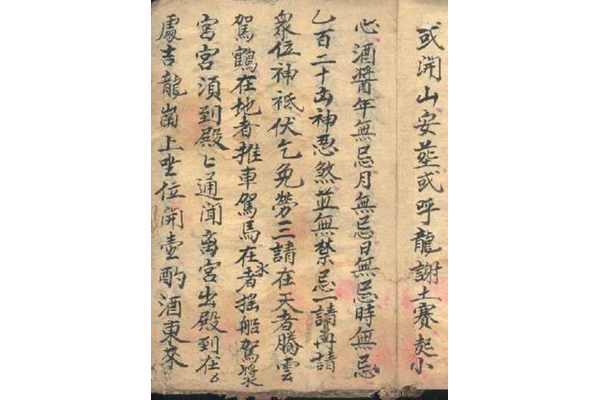 或開山安茔或呼龍謝土賽起小
心酒醬年無忌月無忌日無忌時無忌
乙百二十凶神惡煞並無禁忌一請再請
衆位神祗伏乞免勞三請在天者騰雲
駕鶴在地者推車駕馬在水者摇船駕漿
宫宫須到殿上通聞离宫出殿到在
處吉龍崗上坐位開壺酌酒東來